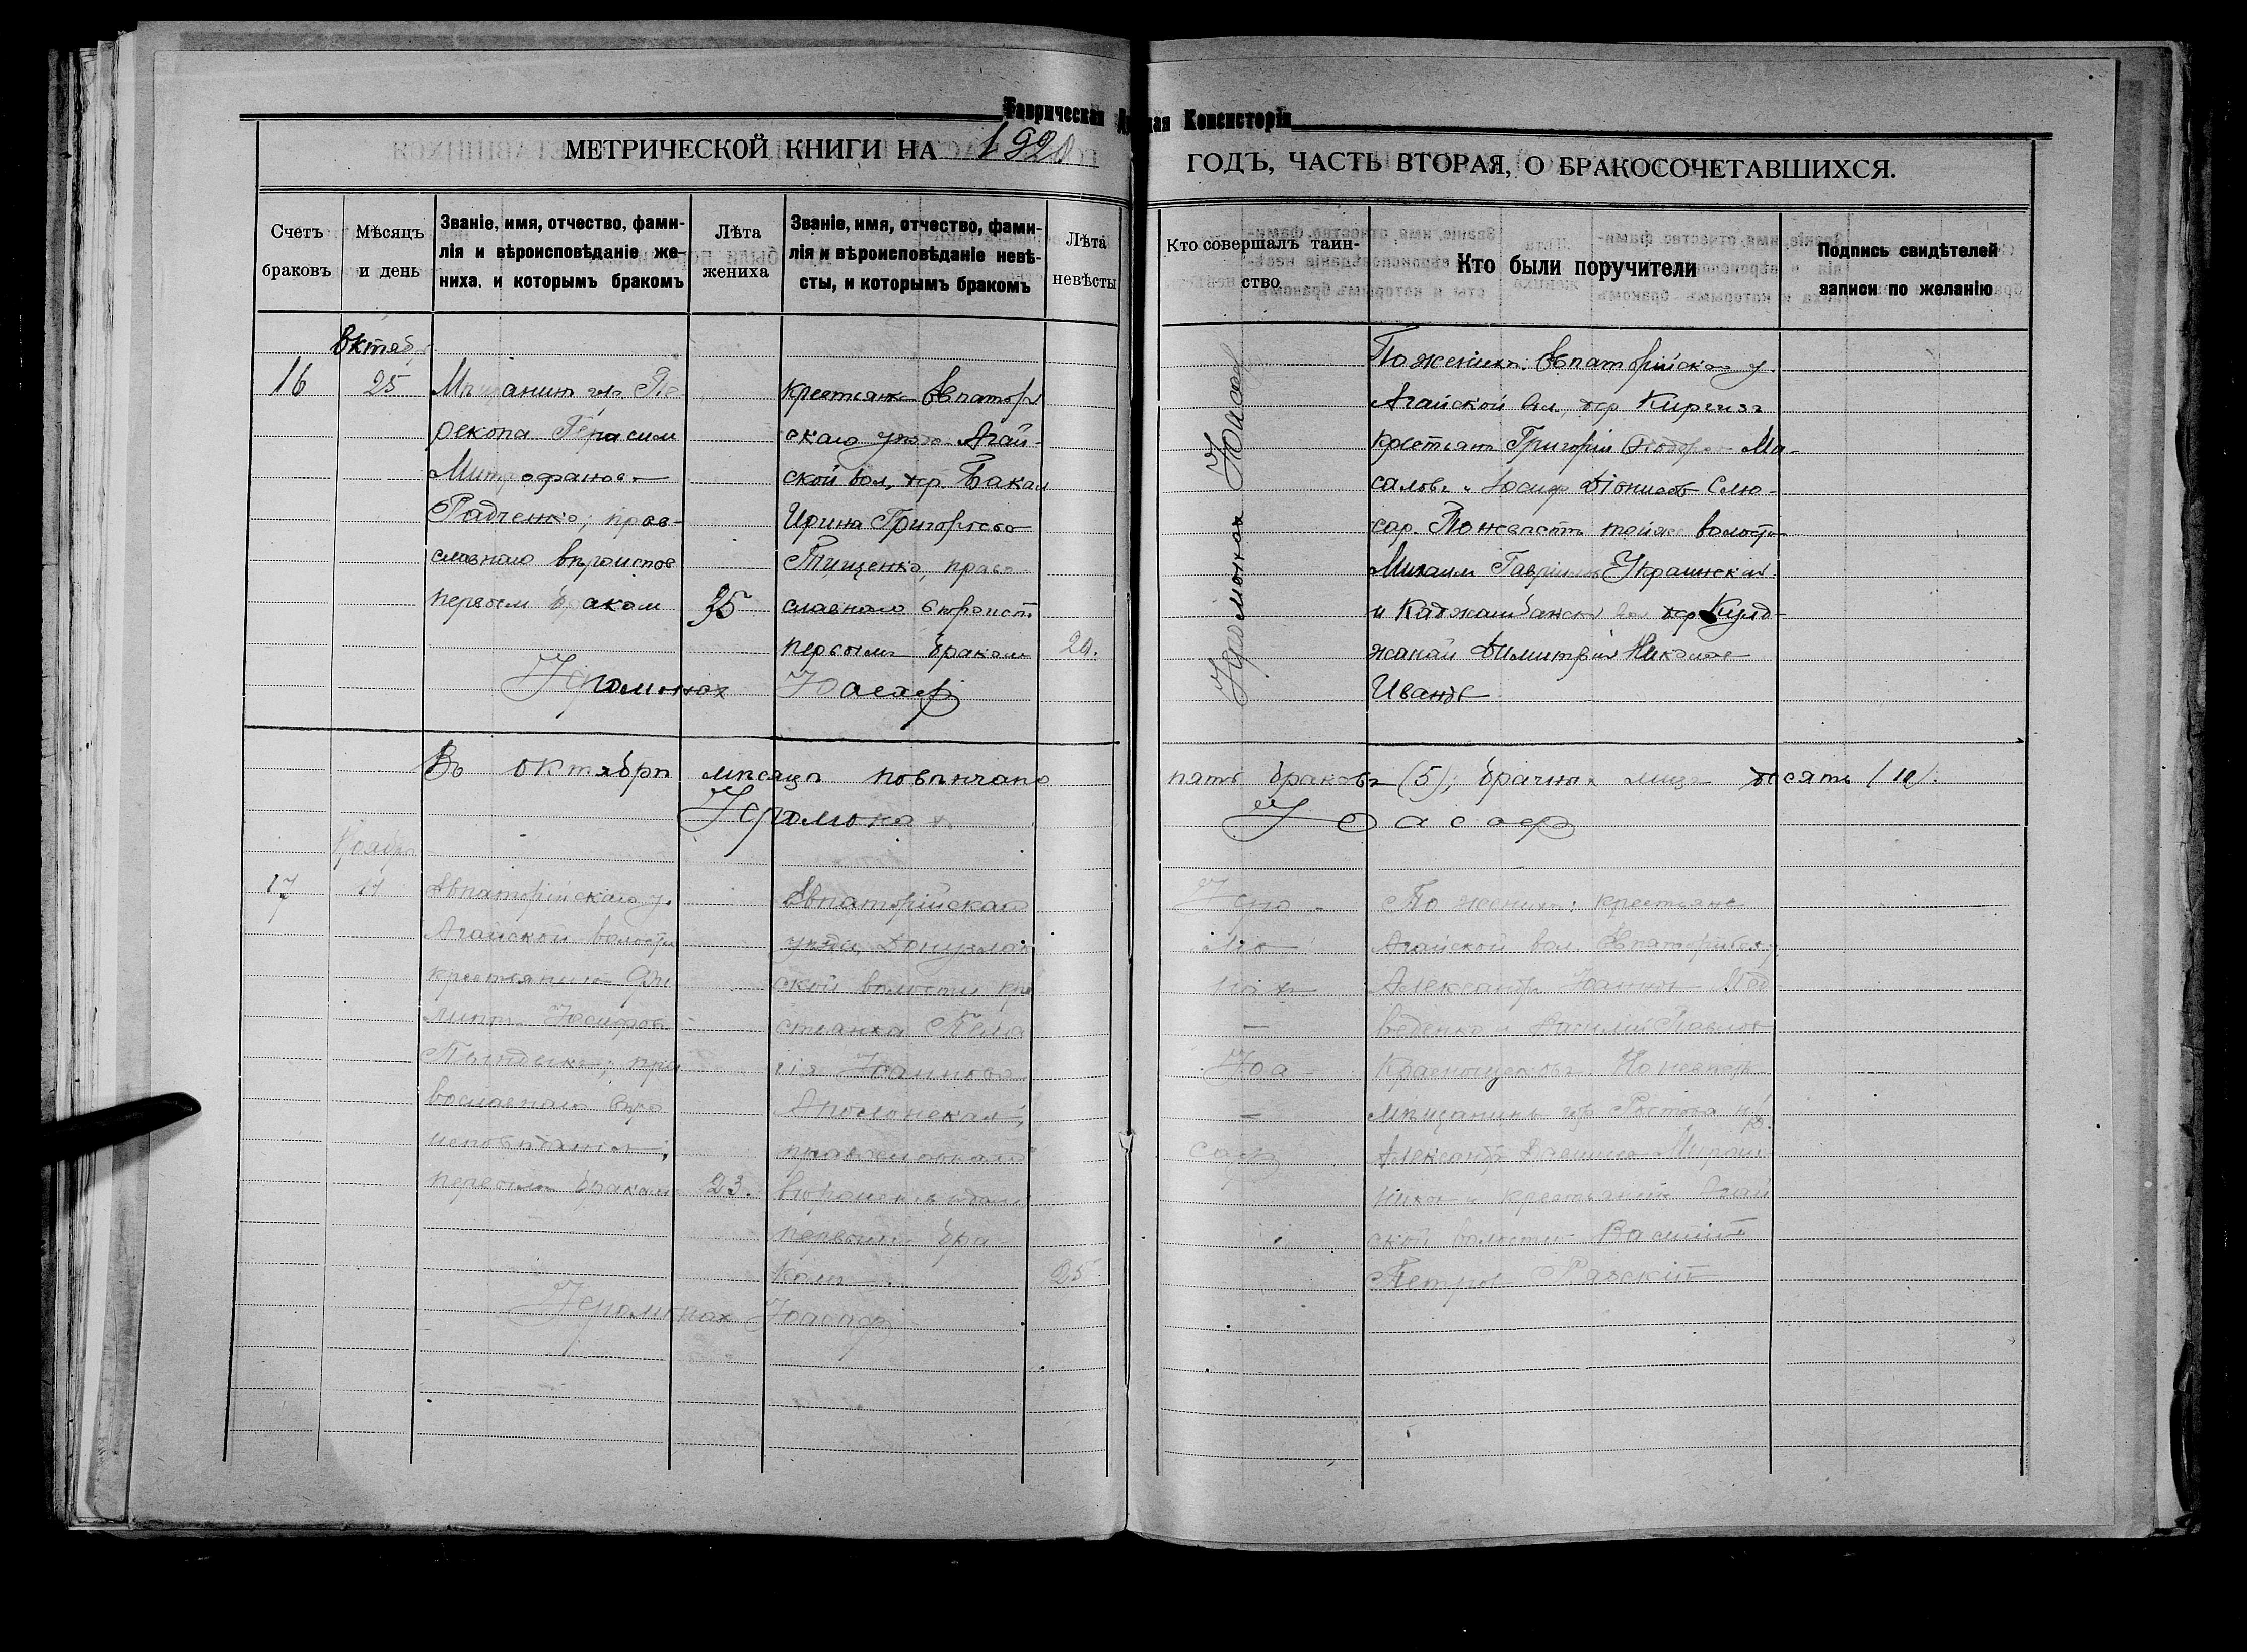 Таврическая
ная Консисторія
МЕТРИЧЕСКОЙ КНИГИ НА 1920
ГОДЪ, ЧАСТЬ ВТОРАЯ, О БРАКОСОЧЕТАВШИХСЯ.
Счетъ
браковъ
Мѣсяцъ
и день
Званіе, имя, отчество, фами-
лія и вѣроисповѣданіе же-
ниха, и которымъ бракомъ
Лѣта
жениха
Званіе, имя, отчество, фами-
лія и вѣроисповѣданіе невѣ-
сты, и которымъ бракомъ
Лѣта
невѣсты
Кто совершалъ таин-
ство
Кто были поручители
Подпись свидѣтелей
записи по желанію
Октяб
16
25
Мѣщанинъ гор. Пе-
рекопа Герасим
Митрофановъ
Радченко, прав-
славнаго вѣроиспов
первым браком
35
крестьянка Евпатор
скаго уѣзда Агай-
ской вол., дер. Бакал
Ирина Григорьева
Тищенко, право
славнаго вѣроисп.
первымъ бракомъ
Іеромонах Іоасаф
Іеромонах Іоасаф
По женихѣ: Евпаторійскаго у.
Агайской вол., дер. Киргизъ
крестьяне Григорій Ма-
саловъ и Іосиф Діонисов Слю-
сар. По невѣстѣ тойже волости
Михаил Гаврілов Украинскій
и Каджамбакск вол дер Кулд-
жанай Димитрій Николаев
Иванов
Въ октябрѣ мѣсяцѣ повѣнчано пять браковъ (5); брачных лицъ десять (10).
Іеромонах Іоасаф
Ноябрь
17
Евпаторійскаго у.
Агайской волости
крестьянинъ Фи
липп Іосифов
пра
вославнаго вѣро
исповѣданія;
первымъ бракомъ
23.
Евпаторійскаго
уѣзда, Донузлав
ской волости кре
стьянка Пела
гія Іоаннова
православнаго
вѣроисповѣдані
первымъ бра
комъ
25.
Іеромонах Іоасаф
Іеро-
мо
нах
—
Іоа-
—
саф
По женихѣ: крестьяне
Агайской вол. Евпаторійск у.
Александр Іоаннов Мед
веденко и Василій Павлов
Краснощековъ. По невѣстѣ
мѣщанинъ гор. Ростова н/д.
Александр Мирош
ников и крестьянин Агай
ской волости Василій
Петров